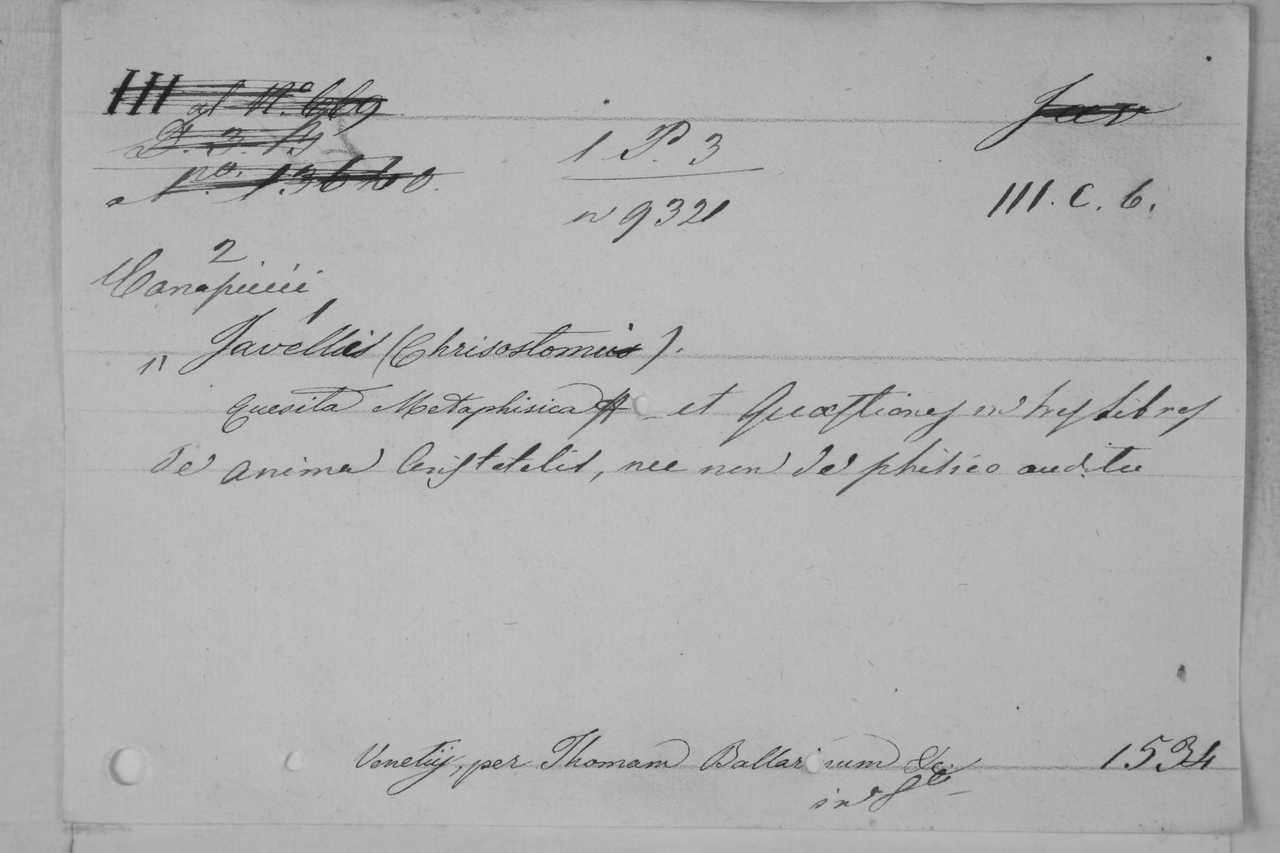 III al N.º 669
D. 3. 14
al N.º 13660
1 P. 3
n 9321
Jav
III. C. 6.
2
Canapicii
1
11 Javellis (Chrisostomus).
Quesita Metaphisica et Quæstiones in tres libros
de anima Aristotelis, nec non de phisico auditu
Venetijs, per Thomam Ballarinum &c. 1534
in 8º